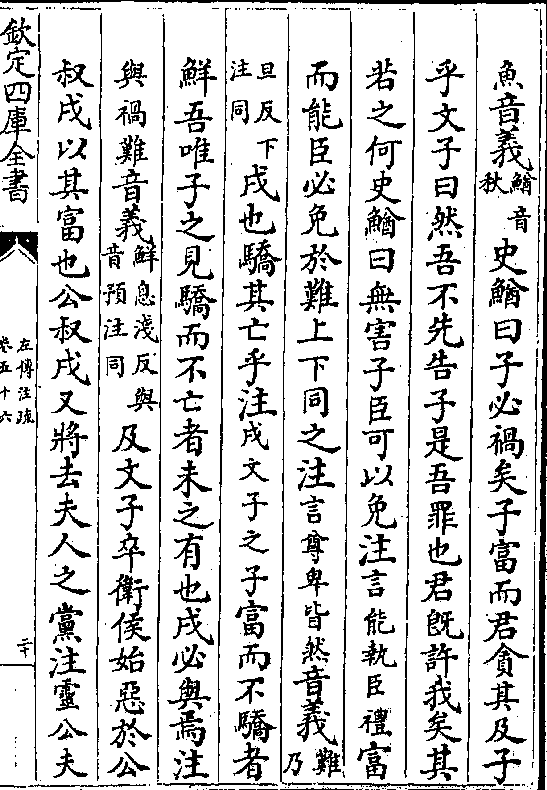 魚音義鰌音秋史鰌曰子必禍矣子富而君貪其及子
乎文子曰然吾不先告子是吾罪也君既許我矣其
若之何史鰌曰無害子臣可以免注言能執臣禮富
而能臣必免於難上下同之注言尊卑皆然音義難乃
旦反下注同戌也驕其亡乎注戌文子之子富而不驕者
鮮吾唯子之見驕而不亡者未之有也戌必與焉注
與禍難音義鮮息淺反與音預注同及文子卒衛侯始惡於公
叔戌以其富也公叔戌又將去夫人之黨注靈公夫
欽定四庫全書
左傳注疏
卷五十六
二十